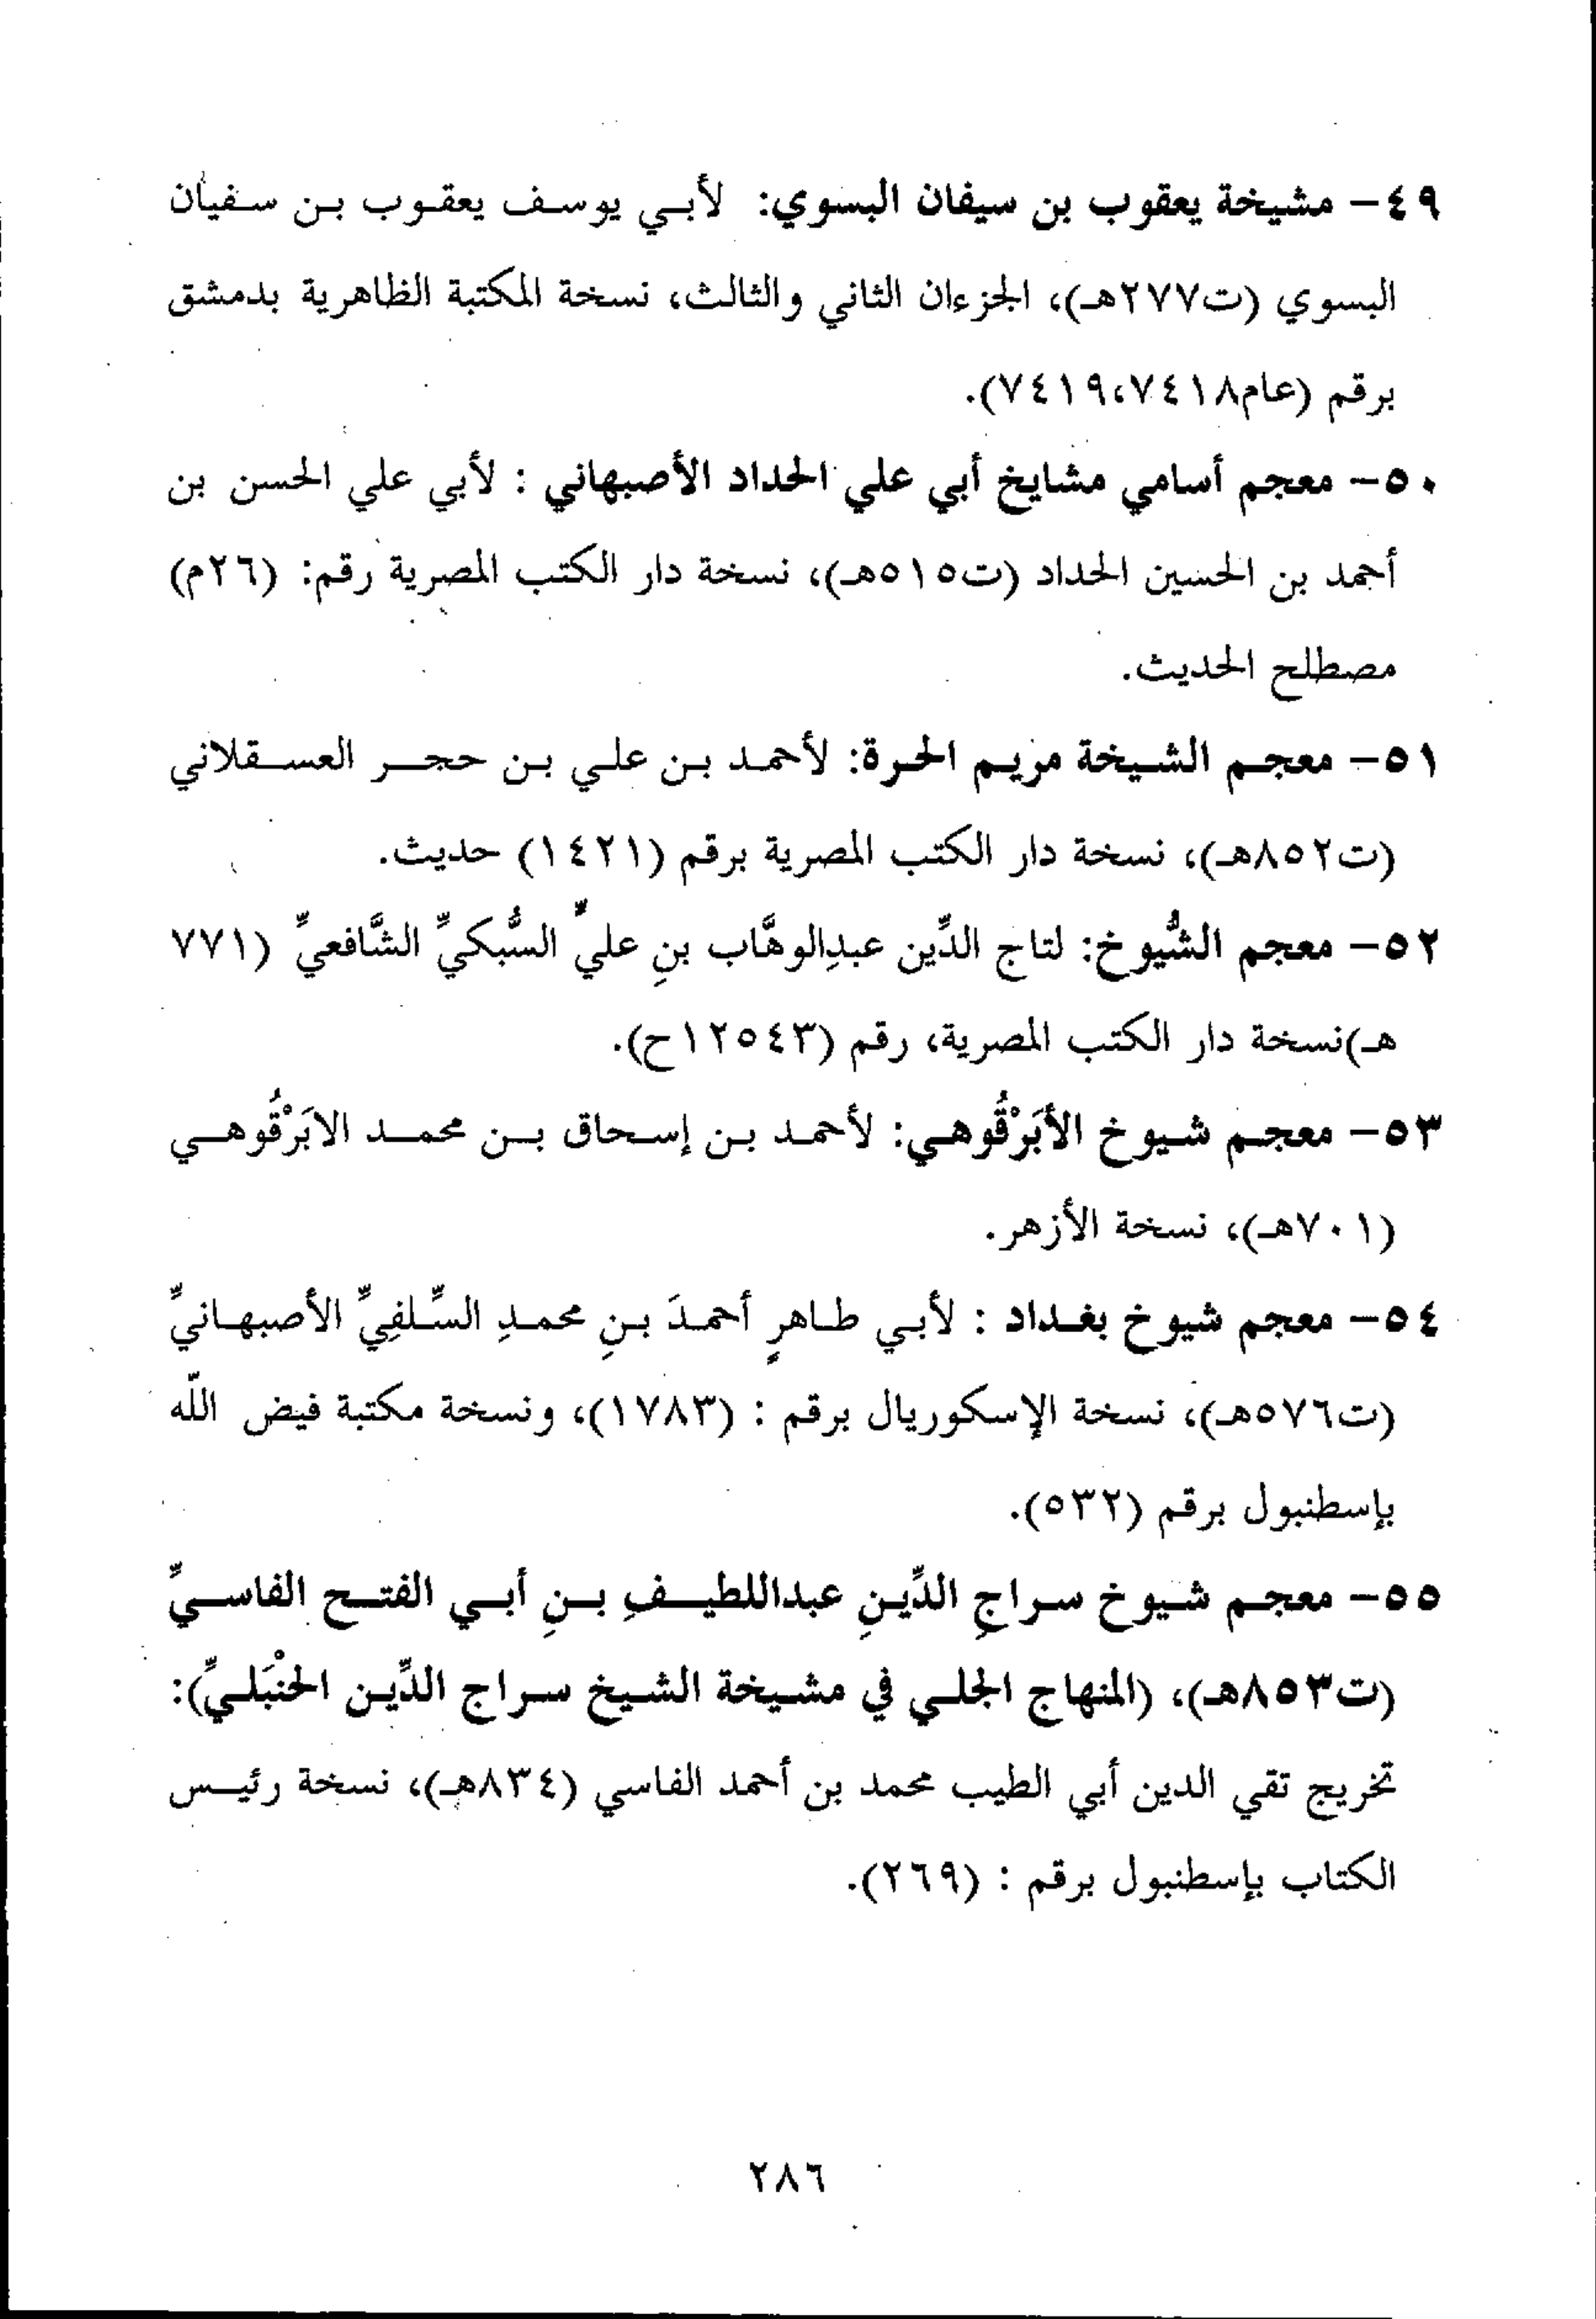 ٤٩- مشيخة يعقوب بن سيفان البسوي: لأبي يوسف يعقوب بن سفيان
البسوي (ت٢٧٧هـ)، الجزءان الثاني والثالث، نسخة المكتبة الظاهرية بدمشق
برقم (عام٧٤١٨،٧٤١٩).
٥٠- معجم أسامي مشايخ أبي علي الحداد الأصبهاني : لأبي علي الحسن بن
أحمد بن الحسين الحداد (ت٥١٥هـ)، نسخة دار الكتب المصرية رقم: (٢٦م)
مصطلح الحديث.
٥١- معجم الشيخة مريم الحرة: لأحمد بن علي بن حجر العسقلاني
(ت٨٥٢هـ)، نسخة دار الكتب المصرية برقم (١٤٢١) حديث.
٥٢- معجم الشُّيوخ: لتاج الدِّين عبدِالوهَّاب بنِ عليٍّ السُّبكيِّ الشَّافعيِّ (٧٧١
هـ)نسخة دار الكتب المصرية، رقم (١٢٥٤٣ح).
٥٣- معجم شيوخ الأبَرْقُوهي: لأحمد بن إسحاق بن محمد الابَرْقُوهي
(٧٠١هـ)، نسخة الأزهر.
٥٤- معجم شيوخ بغداد : لأبي طاهرٍ أحمدَ بنِ محمدِ السِّلفِيِّ الأصبهانيِّ
(ت٥٧٦هـ)، نسخة الإسكوريال برقم : (١٧٨٣)، ونسخة مكتبة فيض اللّه
بإسطنبول برقم (٥٣٢).
٥٥- معجم شيوخ سراجِ الدِّينِ عبداللطيفِ بنِ أبي الفتح الفاسيِّ
(ت٨٥٣هـ)، (المنهاج الجلي في مشيخة الشيخ سراج الدِّين الحنْبَليِّ):
تخريج تقي الدين أبي الطيب محمد بن أحمد الفاسي (٨٣٤هـ)، نسخة رئيس
الكتاب بإسطنبول برقم : (٢٦٩).
٢٨٦